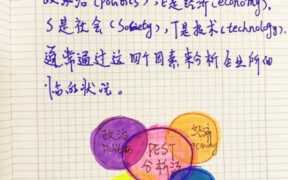 政治(politics), E是经济(economy),
S是社会(Society), T是技术(technology).
通常通过这四个因素来分析企业所面
临的状况。
政治
经济
PEST
分析法